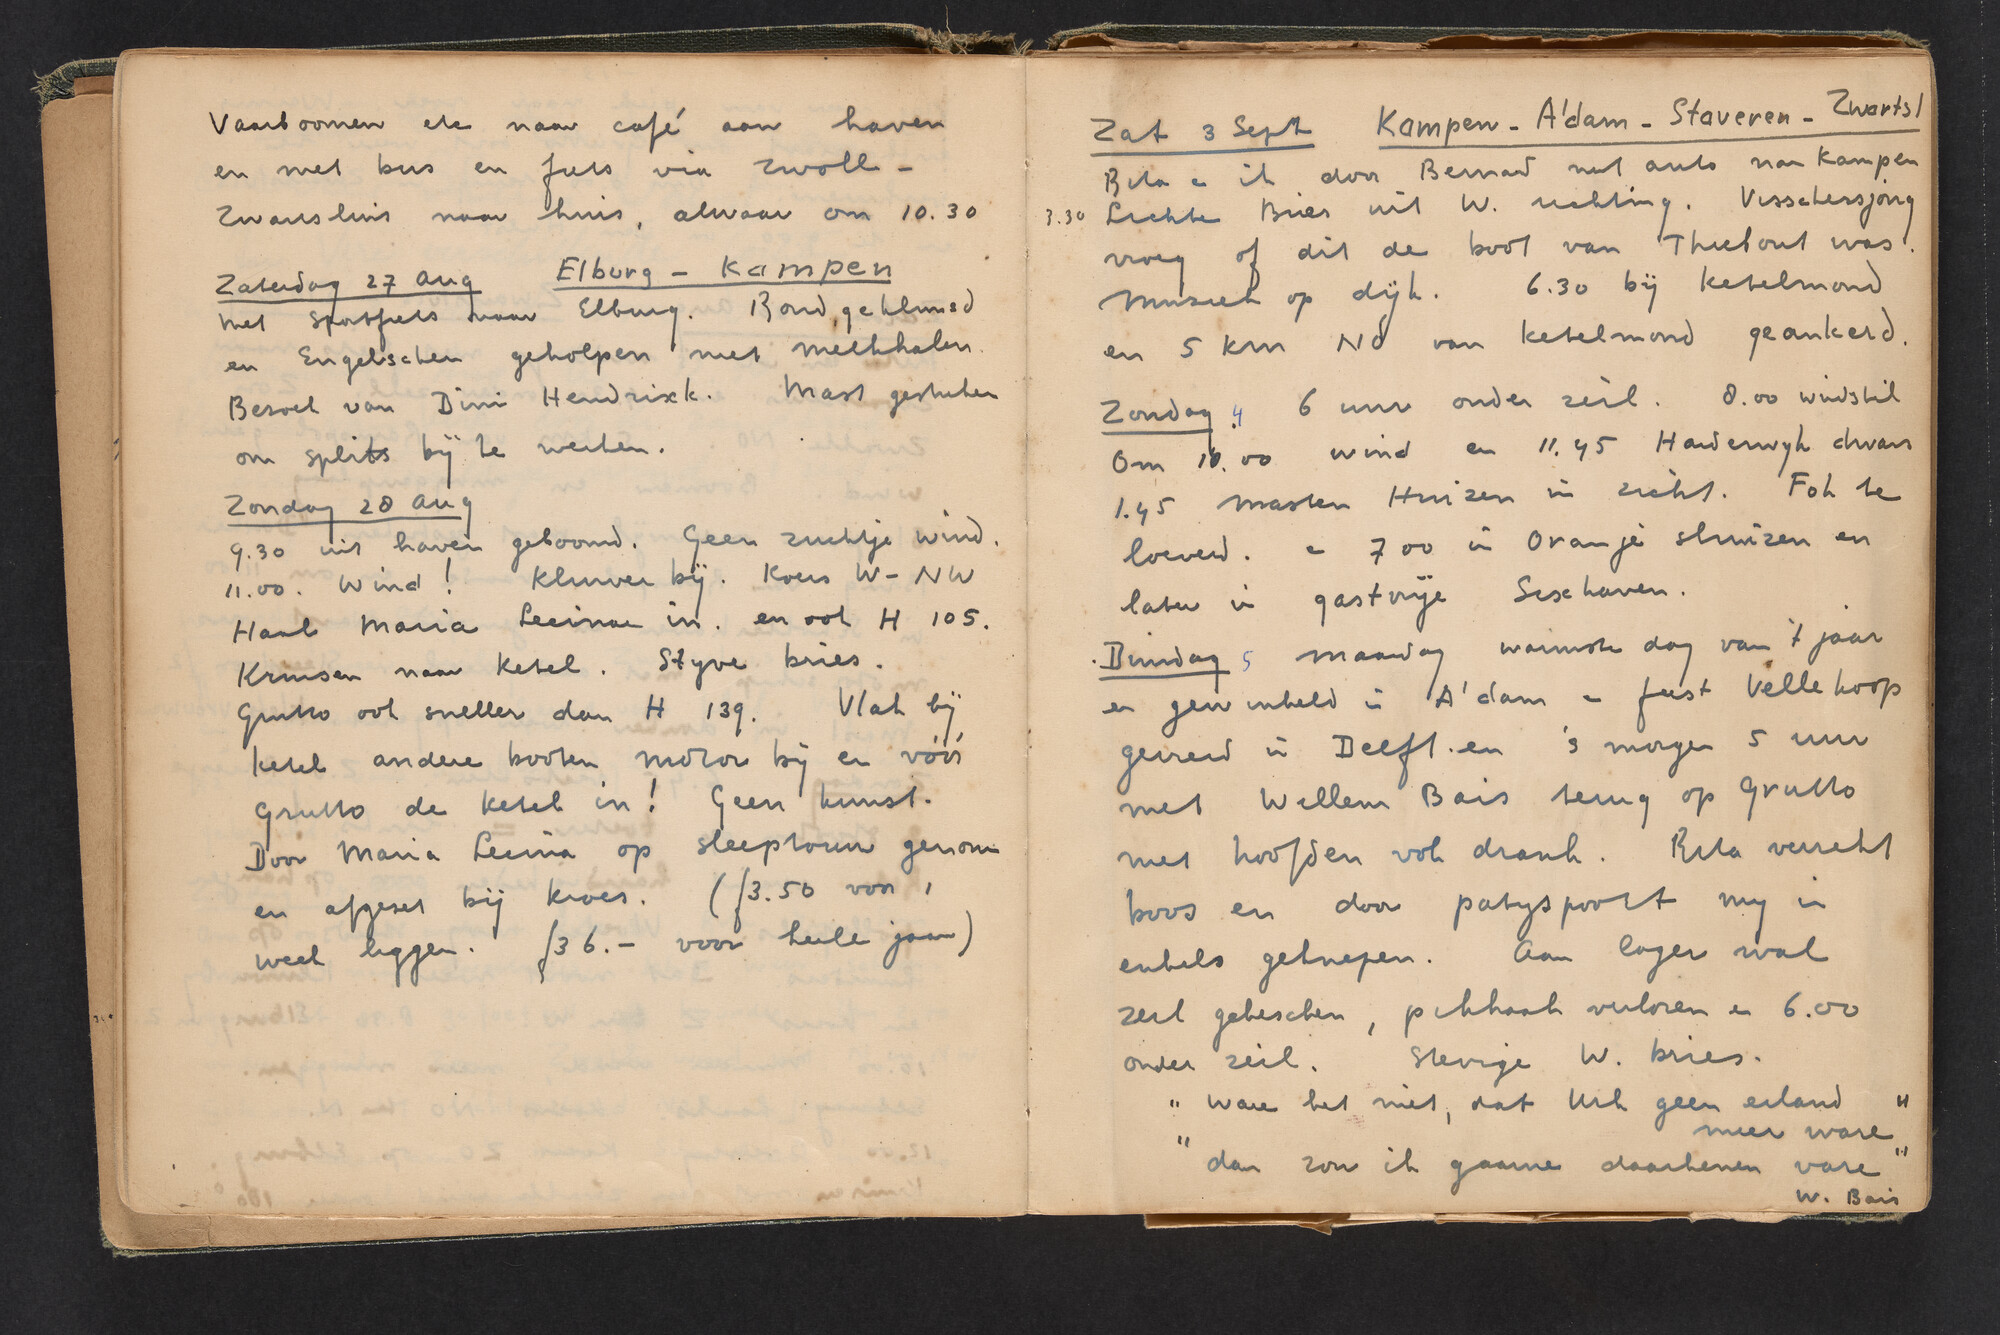 Vaarboomen etc naar café aan haven
en met bus en fiets via Zwoll-
Zwartsluis naar huis, alwaar om 10.30
Zaterdag 27 Aug Elburg - Kampen
Met sportfiets naar Elburg. Rond geklunsd
en Engelschen geholpen met melkhalen.
Bezoek van Dini Hendrixk. Mast gestreken
om splits bij te werken.
Zondag 28 Aug
9.30 uit haven geboomd. Geen zuchtje wind.
11.00. Wind! Kluiver bij. Koers W-NW
Haal Maria Lecina in. en ook H 105.
Kruisen naar Ketel. Styve bries.
Grutto ook sneller dan H 139. Vlak bij
Ketel andere booten motor bij en vóór
Grutto de Ketel in! Geen kunst.
Door Maria Lecina op sleeptouw genom
en afgezet bij Kroes. (f3.50 voor 1
week liggen. f36.- voor heele jaar)
Zat 3 Sept Kampen - A'dam - Staveren - Zwartsl
Rita & ik door Bernard met auto naar Kampen
3.30 Lichte Bries uit W. richting. Visschersjong
vroeg of dit de boot van Thiebout was.
Muziek op dijk. 6.30 bij Ketelmond
en 5 km NO van Ketelmond geankerd.
Zondag 4 6 uur onder zeil. 8.00 windstil
Om 10.00 wind en 11.45 Harderwyk dwars
1.45 masten Huizen in zicht. Fok te
loeverd. & 7 00 in Oranje sluizen en
later in gastvrije Sixhaven.
Dinsdag 5 maandag warmste dag van 't jaar
en gewinkeld in A'dam & feest Vellekoop
gevierd in Delft. en 's morgen 5 uur
met Willem Bais terug op Grutto
met hoofden vol drank. Rita verrekt
boos en door patryspoort my in
enkels geknepen. Aan lager wal
zeil geheschen, pikhaak verloren & 6.00
onder zeil. Stevige W. bries.
" Ware het niet, dat Urk geen eiland "
meer ware
" dan zou ik gaarne daarhenen vare "
W. Bais